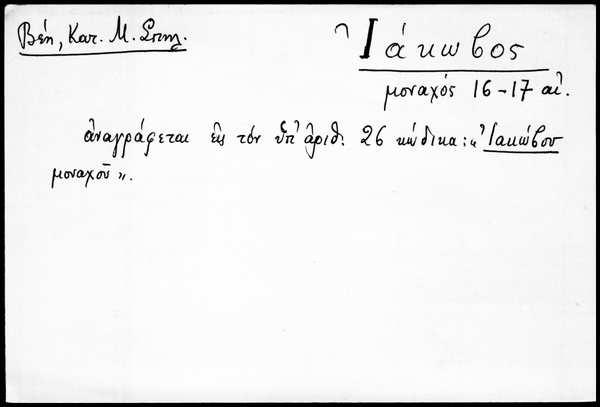 Βέη, Κατ. Μ. Σπηλ.
Ἰάκωβος
μοναχός 16-17 αἰ.
ἀναγράφεται εἰς τόν ὑπ' ἀριθ. 26 κώδικα: «Ἰακώβου
μοναχοῦ».